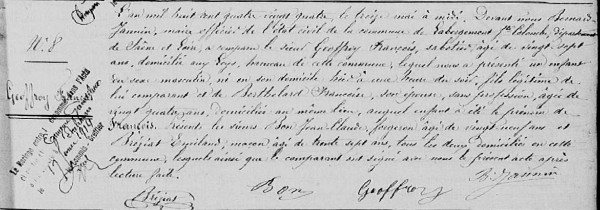 N.° 8
Geoffroy
L'an mil huit cent quatre vingt quatre, le treize mai à midi. Devant nous Bernard
Jannin, maire officier de l'état civil de la commune de Labergement Ste Colombe, Département
de Saône et Loire, a comparu le sieur Geoffroy François, sabotier, âgé de vingt sept
ans, domicilié aux Joys, hameau de cette commune, lequel nous a présenté un enfant
du sexe masculin, né en son domicile hier à heures du soir, fils légitime de
lui comparant et de Berthelard Françoise, son épouse, sans profession, âgée de
vingt quatre ans, domiciliés au même lieu, auquel enfant a été donné le prénom de
François. Présent les sieurs Bon Jean-Claude, forgeron âgé de vingt neuf ans et
Réjiat Emiland, maçon âgé de trente sept ans, tous les deux domiciliés en cette
commune, lesquels ainsi que le comparant ont signé avec nous le présent acte après
lecture faite.
Réjiat Bon Geoffroy B. Jannin